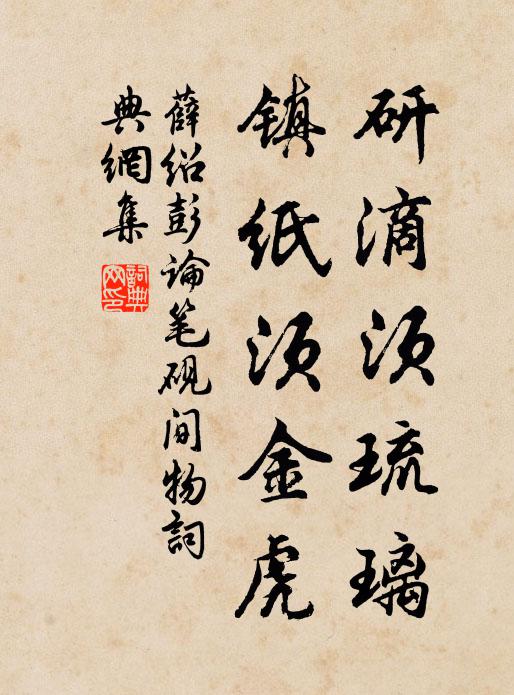 研滴须琉璃
镇纸须金虎
薛绍彭论笔砚间物词
典網集
詞典網印